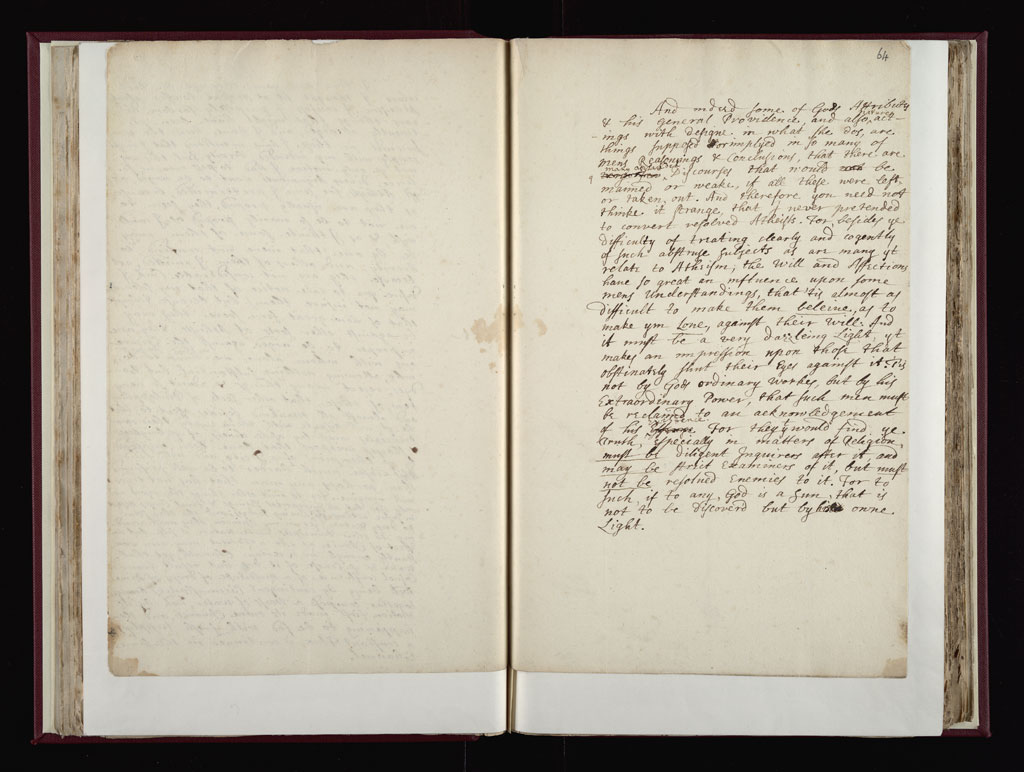 64
And indeed some of Gods Attributes
& his General Providence, and also
Natures
act-
ings with designe in what she dos, are
things supposed or implyed in so many of
mens Reasonings & Conclusions, that there are
many
Discourses that would be
maimed or weake, if all these were left,
or taken out. And therefore you need not
thinke it strange that I never pretended
to convert resolved Atheists. For besides ye
difficulty of treating clearly and cogently
of such abstruse subjects as are many yt
relate to Atheism, the Will and Affections
have so great an influence upon some
mens Understandings, that 'tis almost as
difficult to make them beleive, as to
make ym Love, against their Will. And
it must be a very dazleing Light yt
makes an impression upon those that
obstinately shut their Eyes against it. Tis
not by Gods ordinary workes, but by his
Extraordinary Power, that such men must
be reclamed to an acknowledgement
of his
Existence
For they yt would find ye
Truth, especially in matters of Religion,
must be diligent Inquirers after it and
may be strict Examiners of it, but must
not be resolved Enemies to it. For to
such, if to any, God is a Sun, that is
not to be discoverd but by his owne
Light.